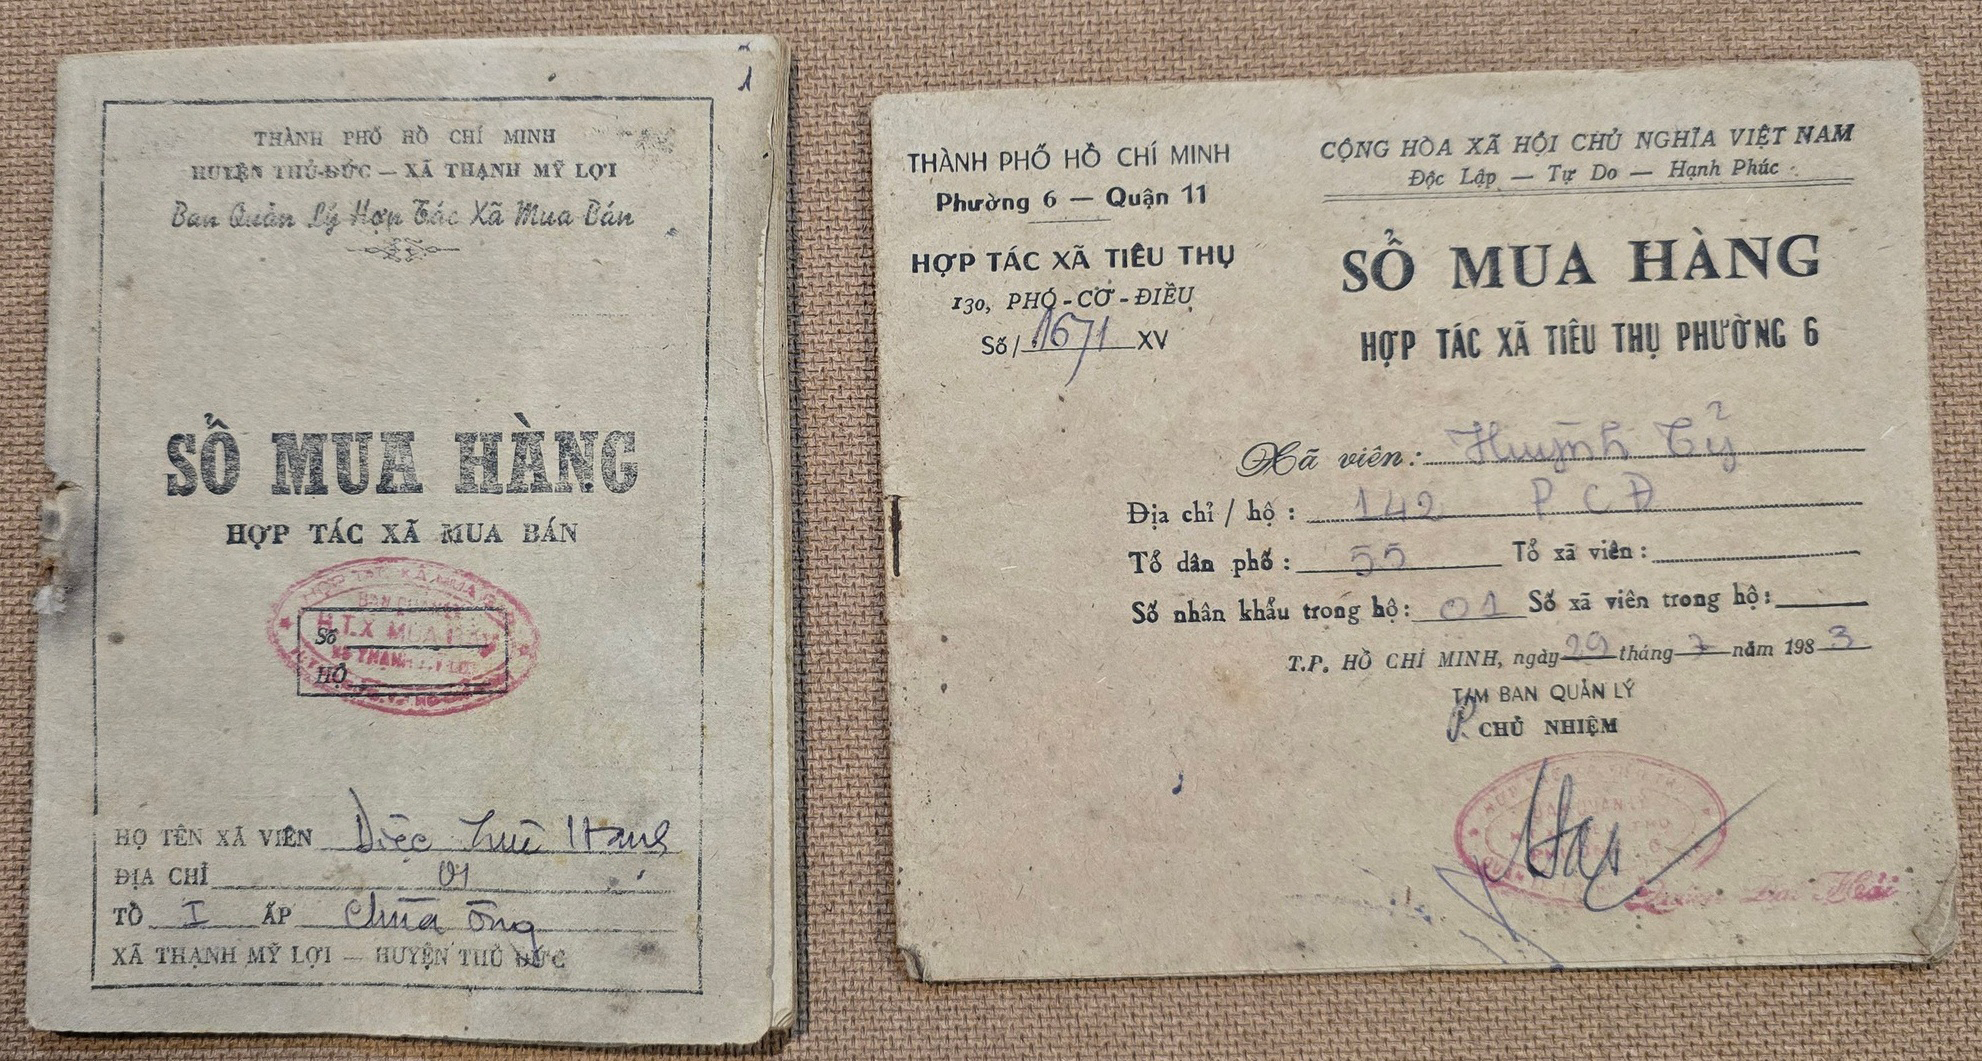 THÀNH PHỐ HỒ CHÍ MINH
HUYỆN THỦ-ĐỨC — XÃ THẠNH MỸ LỢI
Ban Quản Lý Hợp Tác Xã Mua Bán
SỔ MUA HÀNG
HỢP TÁC XÃ MUA BÁN
HỢP TÁC XÃ MUA
H.T.X MUA
Số
HỘ
HỌ TÊN XÃ VIÊN Diệc
ĐỊA CHỈ 01
TỔ I ẤP Chùa Ông
XÃ THẠNH MỸ LỢI — HUYỆN THỦ ĐỨC
THÀNH PHỐ HỒ CHÍ MINH
Phường 6 — Quận 11
HỢP TÁC XÃ TIÊU THỤ
130, PHÓ-CƠ-ĐIỀU
Số/ 1671 XV
CỘNG HÒA XÃ HỘI CHỦ NGHĨA VIỆT NAM
Độc Lập — Tự Do — Hạnh Phúc
SỔ MUA HÀNG
HỢP TÁC XÃ TIÊU THỤ PHƯỜNG 6
Xã viên: Huỳnh Tỷ
Địa chỉ / hộ : 142 P C Đ
Tổ dân phố : 55 Tổ xã viên :
Số nhân khẩu trong hộ: 01 Số xã viên trong hộ:
T.P. HỒ CHÍ MINH, ngày 29 tháng 7 năm 1983
T/M BAN QUẢN LÝ
P. CHỦ NHIỆM